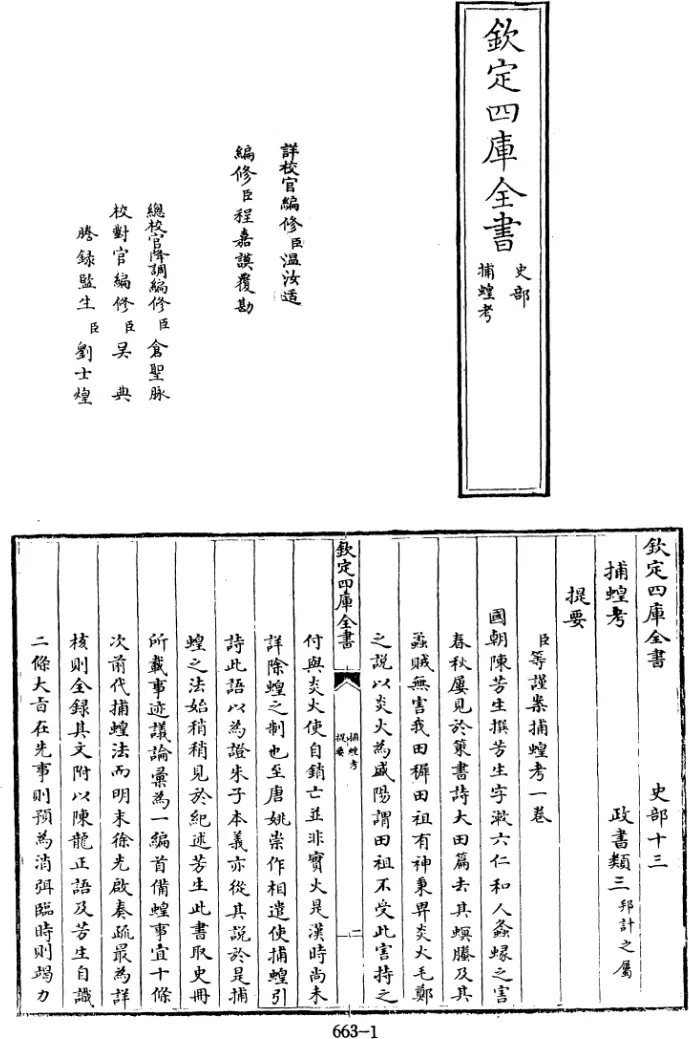 欽定四庫全書
史部
捕蝗考
詳校官編修臣溫汝适
編修臣程嘉謨覆勘
總校官降調編修臣倉聖脉
校對官編修臣吴典
謄録監生臣劉士煌
欽定四庫全書 史部十三
捕蝗考 政書類三邦計之屬
提要
臣等謹案捕蝗考一卷
國朝陳芳生撰芳生字漱六仁和人螽蝝之害
春秋屢見於策書詩大田篇去其螟螣及其
蟊賊無害我田穉田祖有神秉畀炎火毛鄭
之説以炎火為盛陽謂田祖不受此害持之
欽定四庫全書
捕蝗考
提要
二
付與炎火使自銷亡並非實火是漢時尚未
詳除蝗之制也至唐姚崇作相遣使捕蝗引
詩此語以為證朱子本義亦從其説於是捕
蝗之法始稍稍見於紀述芳生此書取史冊
所載事迹議論彙為一編首備蝗事宜十條
次前代捕蝗法而明末徐光啟奏疏最為詳
核則全録其文附以陳龍正語及芳生自識
二條大旨在先事則預為消弭臨時則竭力
663-1